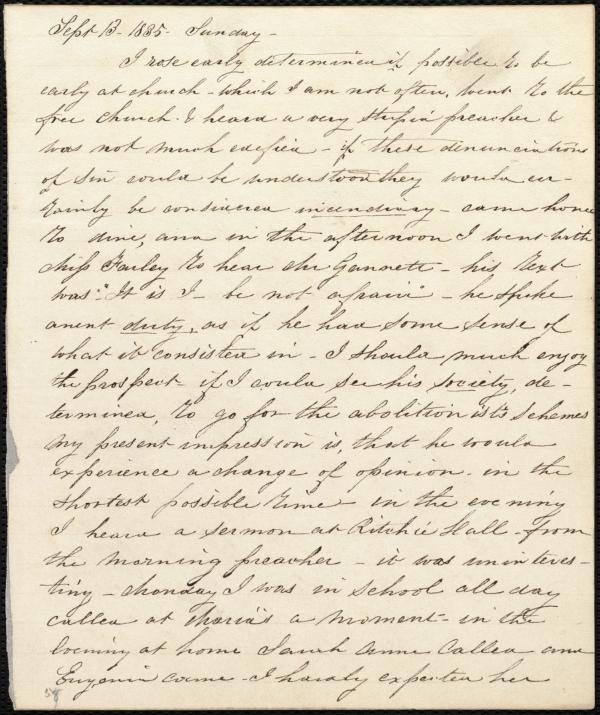 Sept 13 - 1835 - Sunday -
I rose early determined if possible to be
early at church - which I am not often, Went to the
free church & heard a very stupid preacher &
was not much edified - if these denunciations
of sin could be understood they would cer-
tainly be considered incendiary - came home
to dine, and in the afternoon I went with
Miss Farley to hear Mr Gannett - his text
was "It is I - be not afraid" - he spoke
anent duty, as if he had some sense of
what it consisted in - I should much enjoy
the prospect - if I could see his society, de-
termined, to go for the abolitionists schemes
my present impression is, that he would
experience a change of opinion - in the
shortest possible time - in the evening
I heard a sermon at Ritchie Hall - from
the morning preacher - it was uninteres-
ting - Monday I was in school all day
called at Maria's a moment - in the
Evening at home Sarah Anne Called and
Eugenia came - I hardly expected her
58